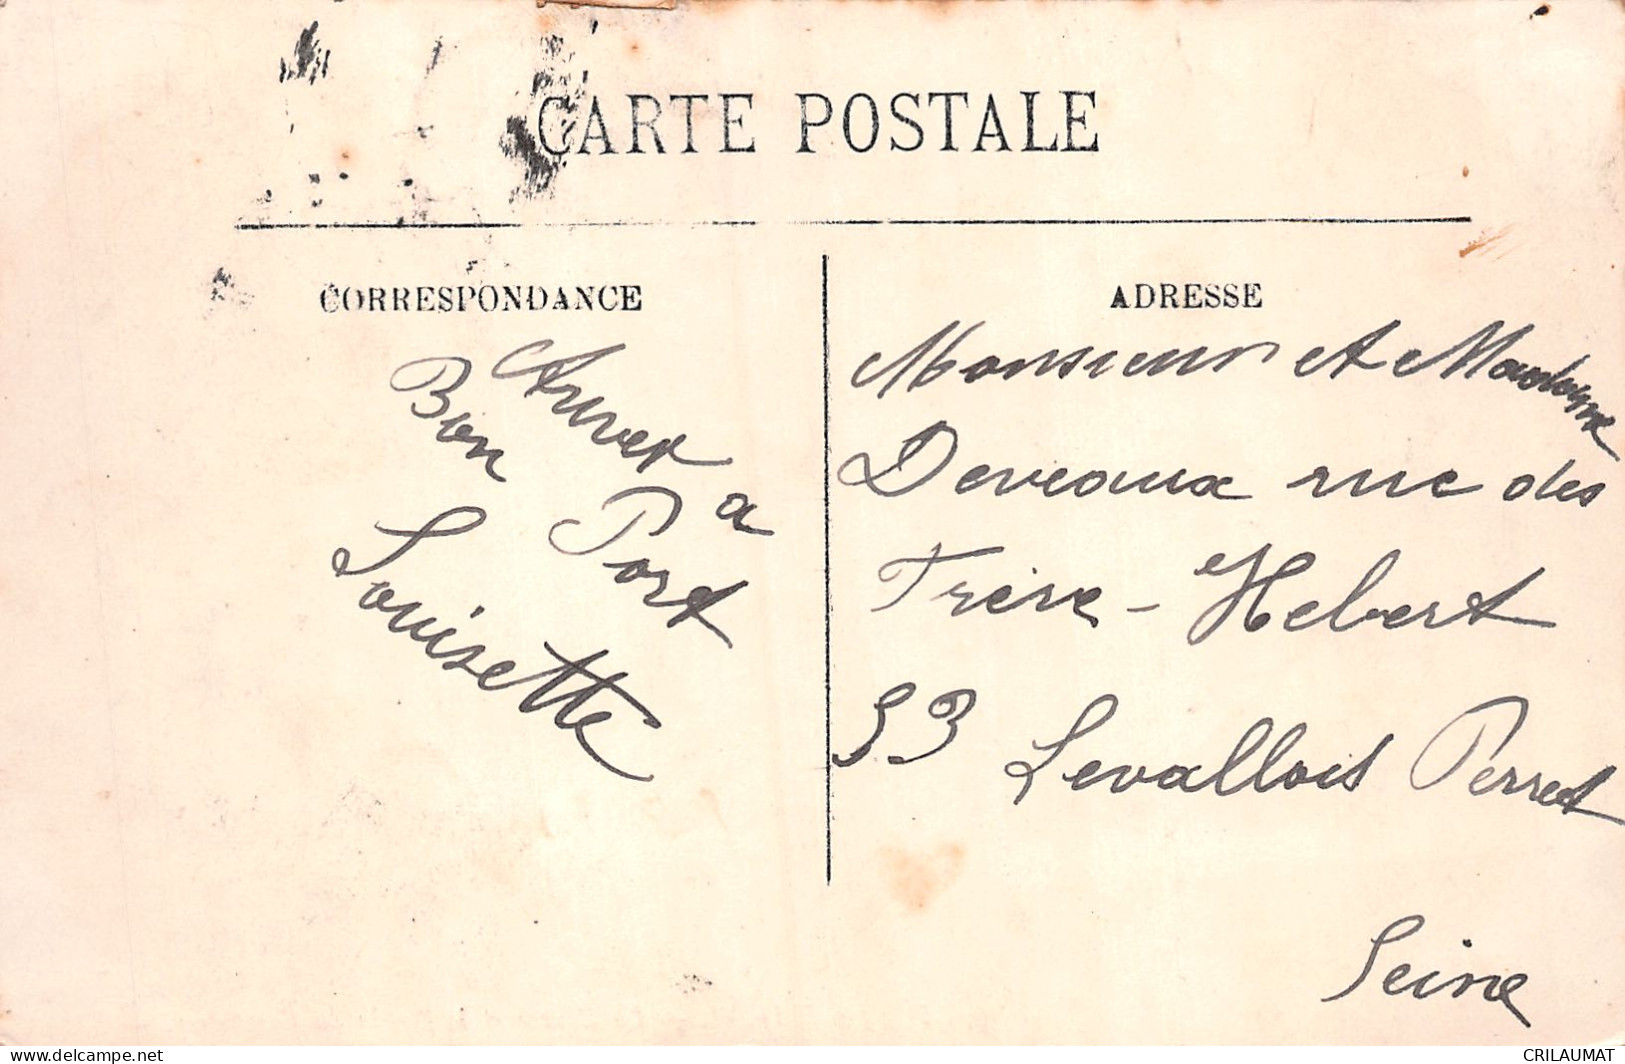 CARTE POSTALE
CORRESPONDANCE
Arriver a
Bon Port
Louisette
ADRESSE
Monsieur et Madame
Deveaux rue des
Frère - Hebert
53 Levallois Perret
Seine
delcampe.net
CRILAUMAT